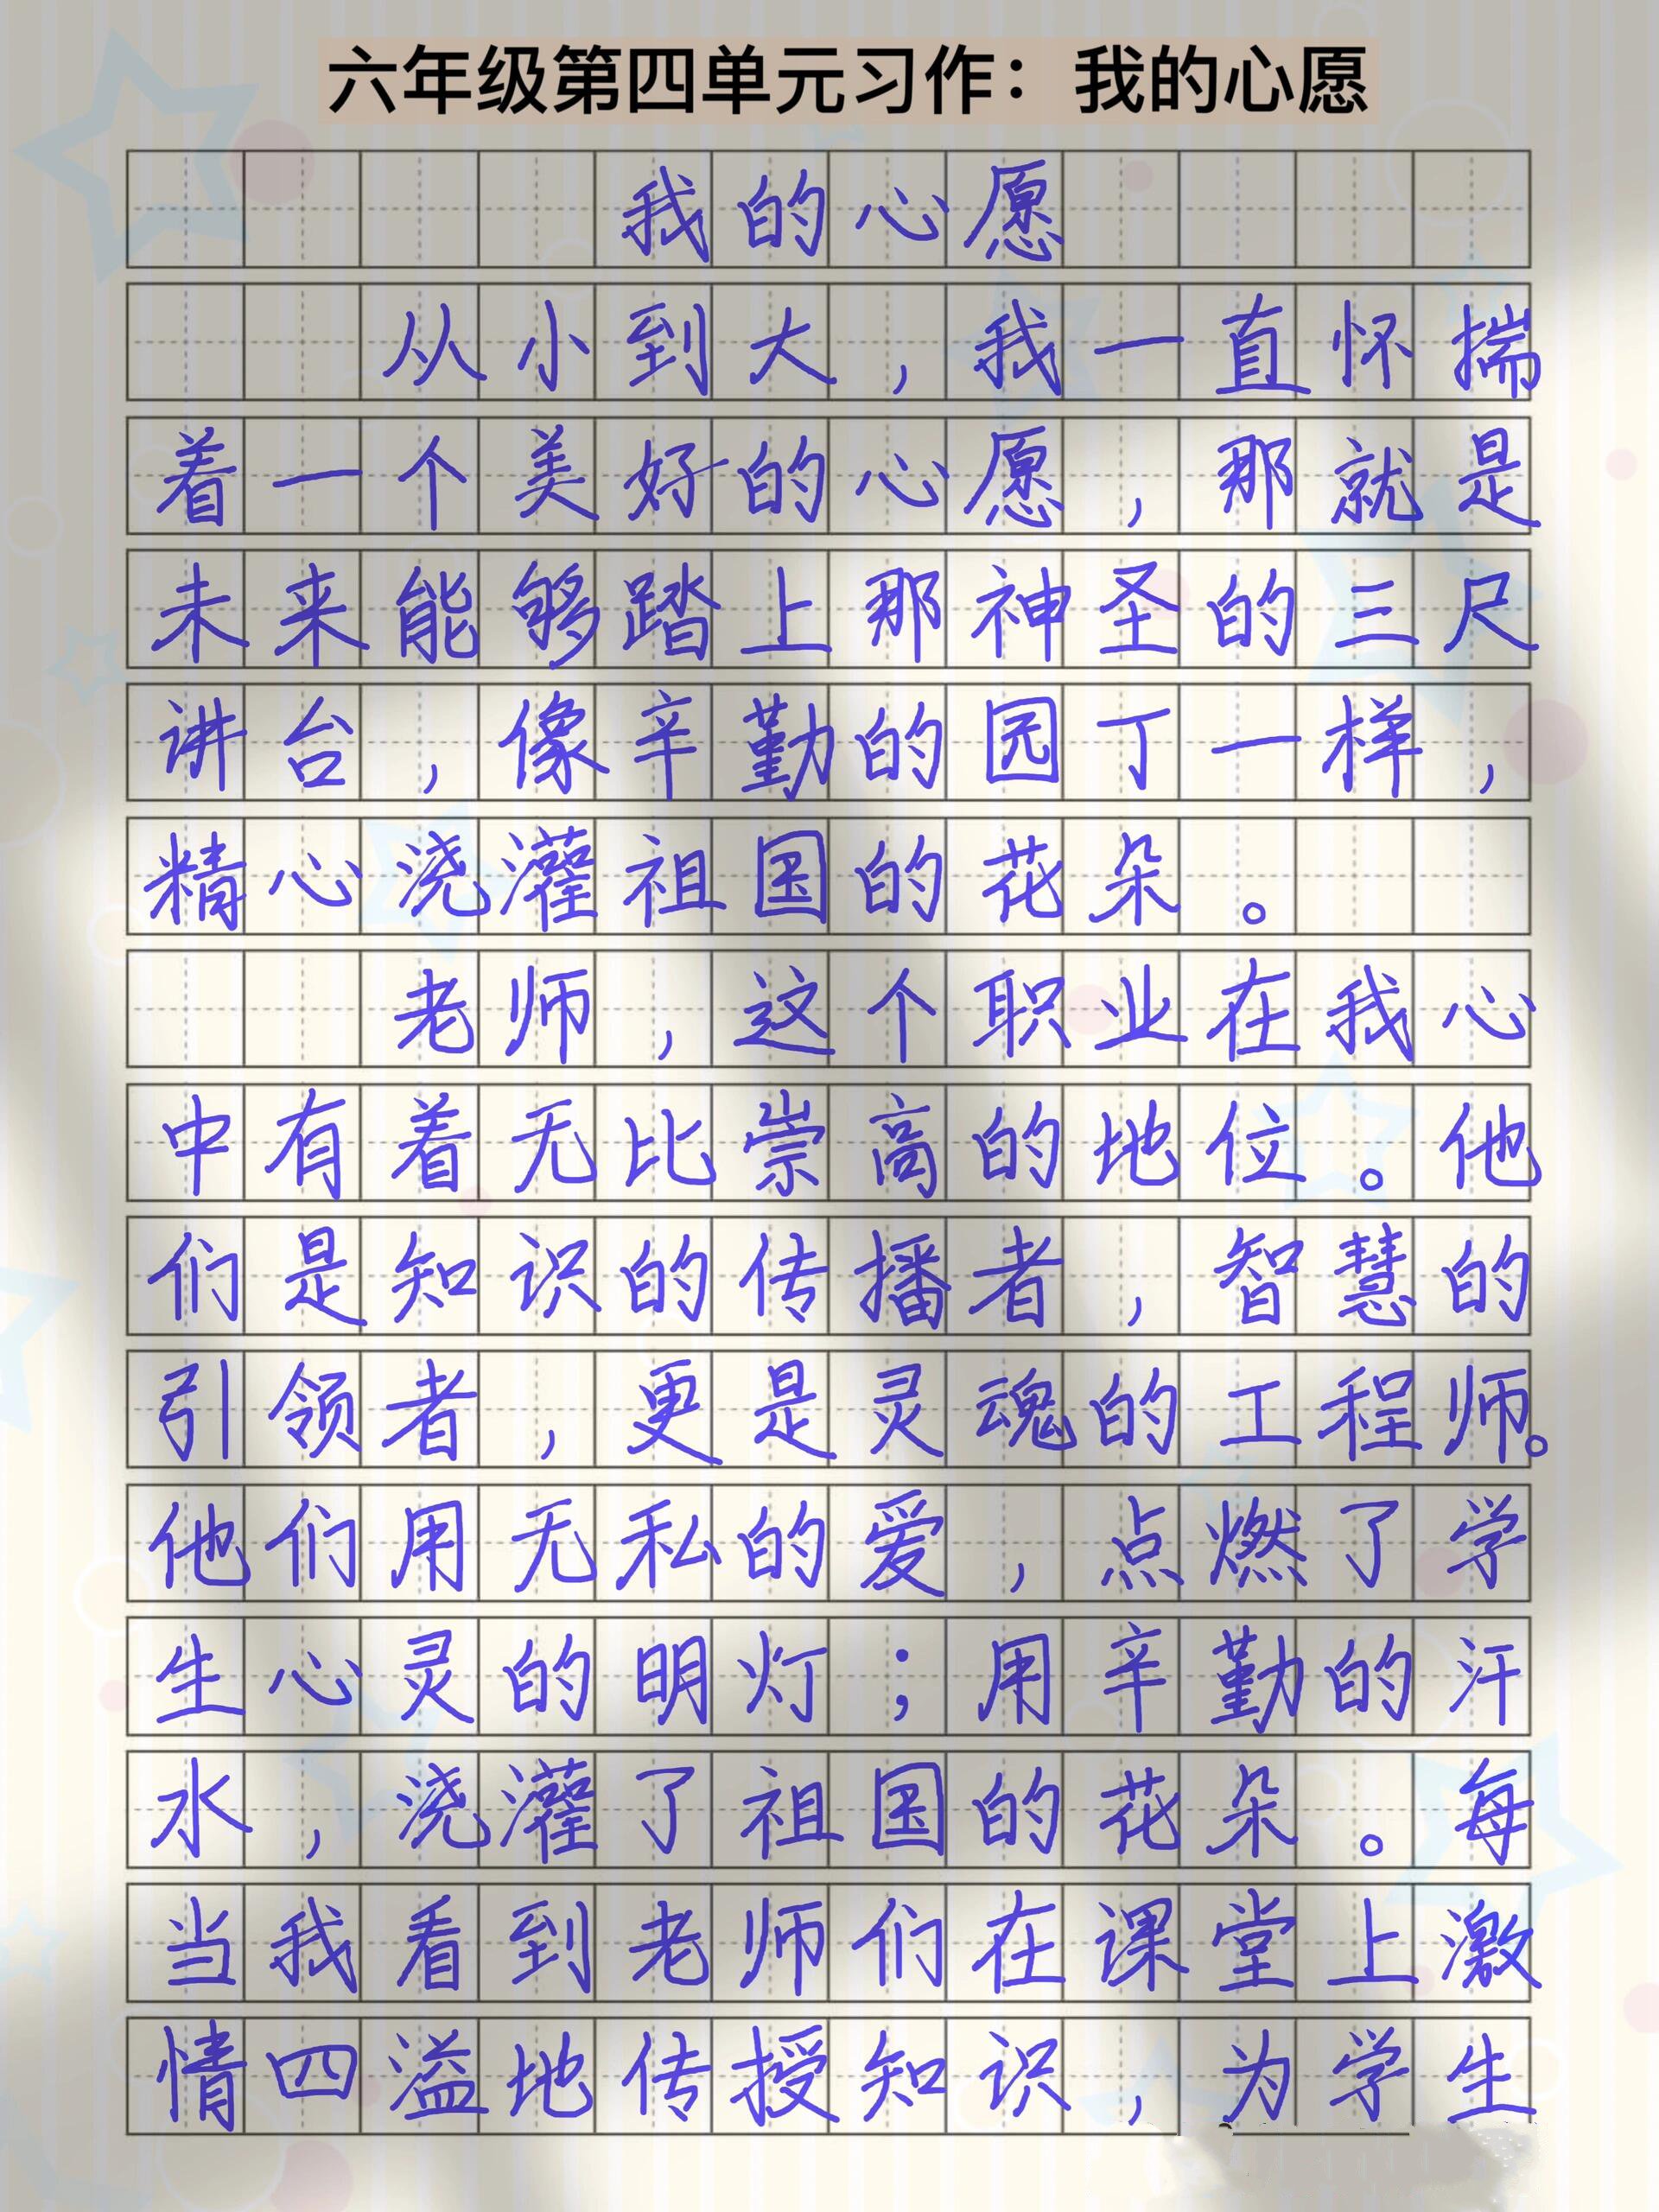 六年级第四单元习作：我的心愿
我的心愿
从小到大，我一直怀揣
着一个美好的心愿，那就是
未来能够踏上那神圣的三尺
讲台，像辛勤的园丁一样，
精心浇灌祖国的花朵。
老师，这个职业在我心
中有着无比崇高的地位。他
们是知识的传播者，智慧的
引领者，更是灵魂的工程师。
他们用无私的爱，点燃了学
生心灵的明灯；用辛勤的汗
水，浇灌了祖国的花朵。每
当我看到老师们在课堂上激
情四溢地传授知识，为学生